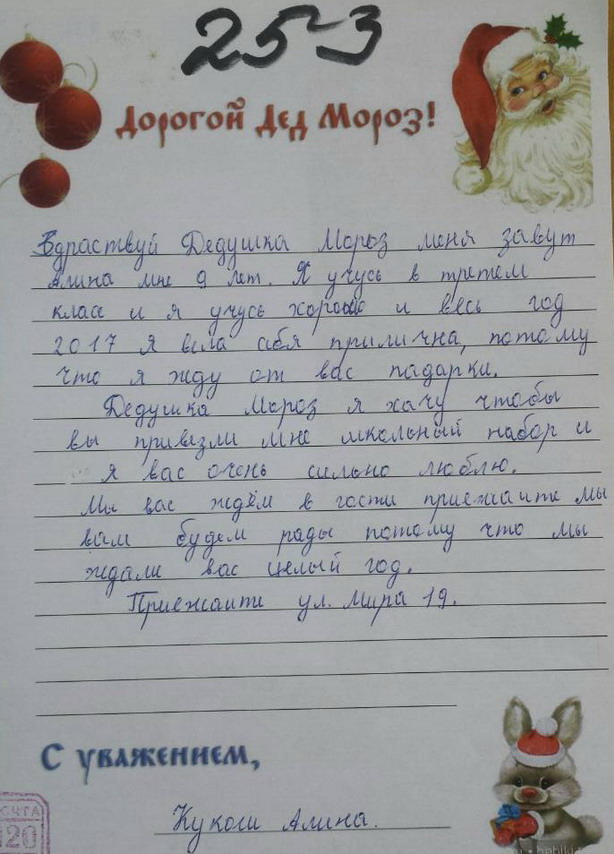 25-3
Дорогой Дед Мороз!
Здраствуй Дедушка Мороз меня завут
Алина мне 9 лет. Я учусь в третем
класе и я учусь хорошо и весь год
2017 я вела себя прилична, потому
что я жду от вас падарки.
Дедушка Мороз я хачу чтобы
вы привезли мне школьный набор и
я вас очень сильно люблю.
Мы вас ждём в гости приежаите мы
вам будем рады потому что мы
ждали вас целый год.
Приежаите ул. Мира 19.
С уважением,
Кукош Алина.
ПОЧТА
20